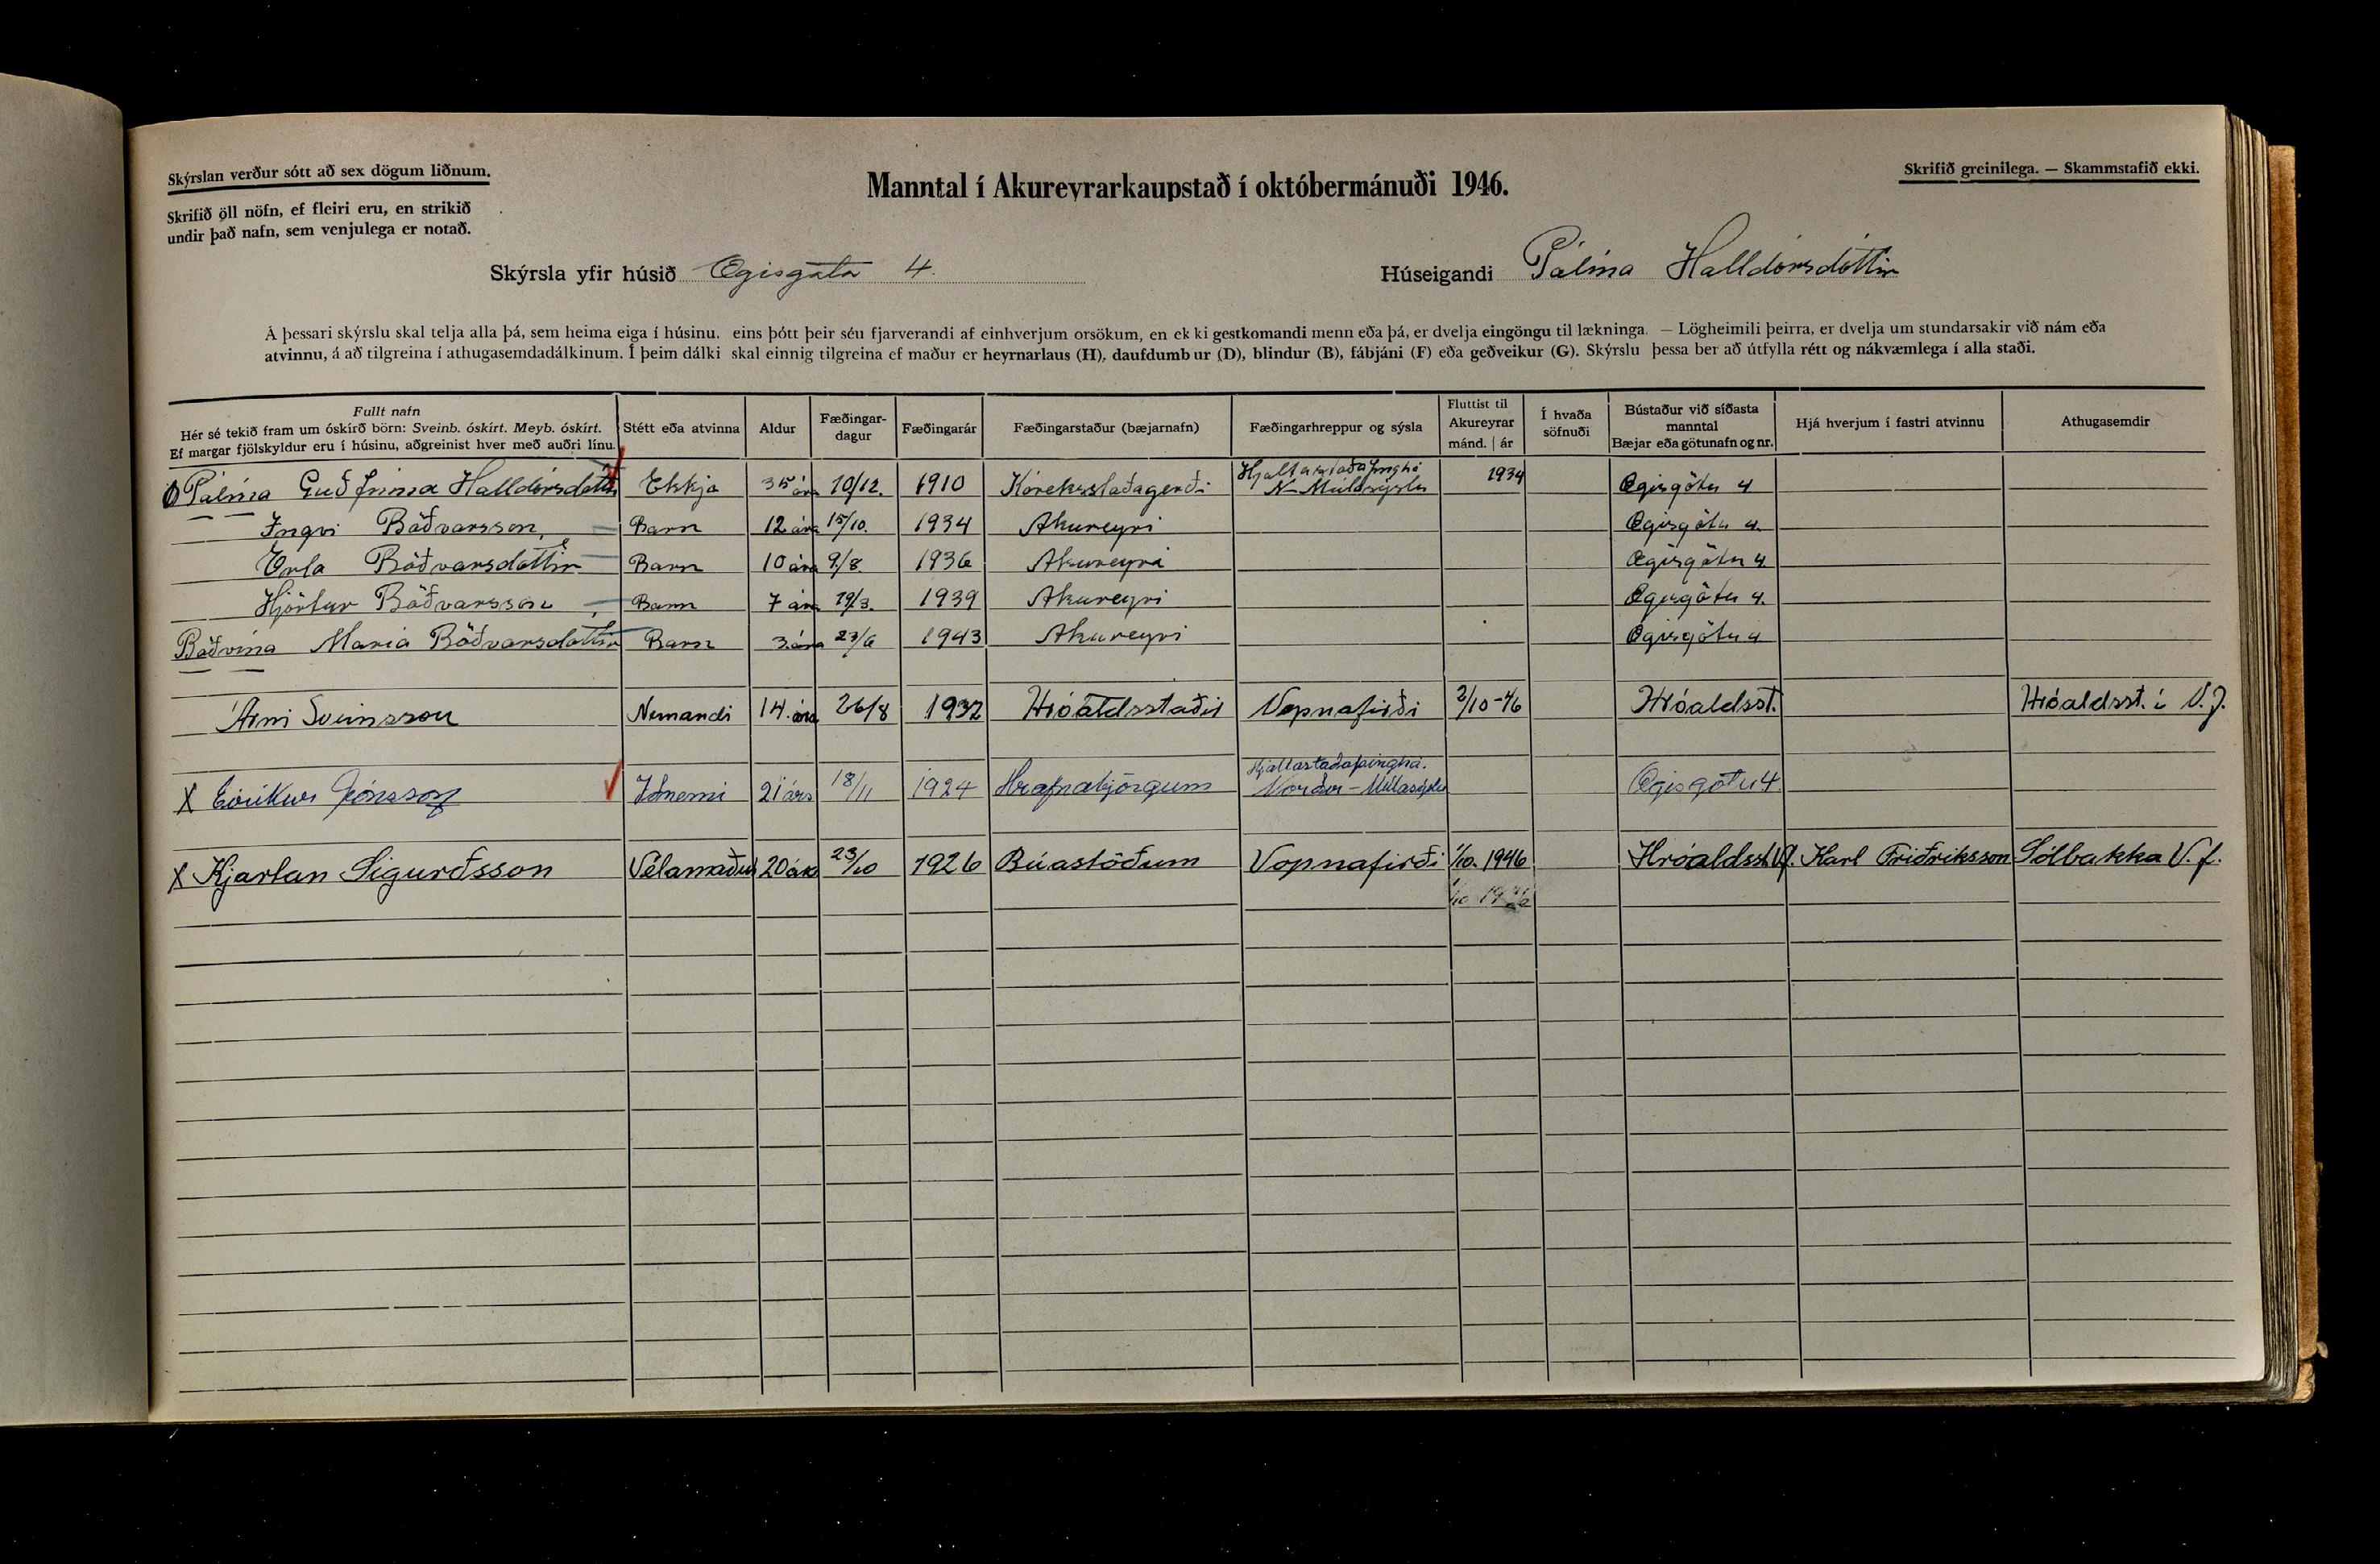 Skýrslan verður sótt að sex dögum liðnum.
Skrifið öll nöfn, ef fleiri eru, en strikið
undir það nafn, sem venjulega er notað.
Manntal í Akureyrarkaupstað í októbermánuði 1946.
Skrifið greinilega. — Skammstafið ekki.
Skýrsla yfir húsið Ægisgata 4. Húseigandi Pálína Halldórsdóttir
Á þessari skýrslu skal telja alla þá, sem heima eiga í húsinu, eins þótt þeir séu fjarverandi af einhverjum orsökum, en ekki gestkomandi menn eða þá, er dvelja eingöngu til lækninga. — Lögheimili þeirra, er dvelja um stundarsakir við nám eða
atvinnu, á að tilgreina í athugasemdadálkinum. Í þeim dálki skal einnig tilgreina ef maður er heyrnarlaus (H), daufdumbur (D), blindur (B), fábjáni (F) eða geðveikur (G). Skýrslu þessa ber að útfylla rétt og nákvæmlega í alla staði.
Fullt nafn
Hér sé tekið fram um óskírð börn: Sveinb. óskírt. Meyb. óskírt.
Ef margar fjölskyldur eru í húsinu, aðgreinist hver með auðri línu.
Stétt eða atvinna
Aldur
Fæðingar-
dagur
Fæðingarár
Fæðingarstaður (bæjarnafn)
Fæðingarhreppur og sýsla
Fluttist til
Akureyrar
mánd. | ár
Í hvaða
söfnuði
Bústaður við síðasta
manntal
Bæjar eða götunafn og nr.
Hjá hverjum í fastri atvinnu
Athugasemdir
Pálína Guðfinna Halldórsdóttir Ekkja 35 ára 10/12. 1910 Kóreksstaðagerði Hjaltastaðaþinghá N-Múlasýslu 1934 Ægisgötu 4
Ingvi Böðvarsson, Barn 12 ára 15/10. 1934 Akureyri Ægisgötu 4.
Erla Böðvarsdóttir Barn 10 ára 9/8 1936 Akureyri Ægisgötu 4
Hjörtur Böðvarsson Barn 7 ára 19/3. 1939 Akureyri Ægisgötu 4.
Böðvína María Böðvarsdóttir Barn 3 ára 23/6 1943 Akureyri Ægisgötu 4
Árni Sveinsson Nemandi 14 ára 26/8 1932 Hróaldsstaðir Vopnafirði 2/10-46 Hróaldsst. Hróaldsst. í V.f.
X Eiríkur Jónsson Iðnemi 21 árs 18/11 1924 Hrafnabjörgum Hjaltastaðaþinghá. Norður-Múlasýslu Ægisgötu 4
X Kjartan Sigurðsson Vélamaður 20 ára 23/10 1926 Búastöðum Vopnafirði 1/10. 1946 Hróaldsst. Vf. Karl Friðriksson Sólbakka V.f.
1/10 1946